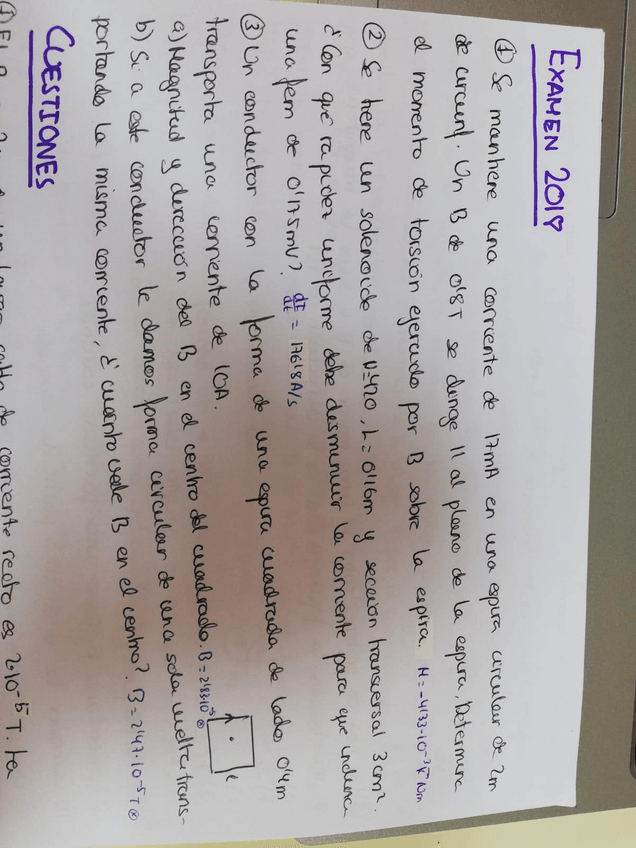 EXAMEN 2018
① Se mantiene una corriente de 17mA en una espira circular de 2m
de circunf. Un B de 0'8T se dirige || al plano de la espira. Determina
el momento de torsión ejercido por B sobre la espira. M = -4'33·10⁻³ k⃗ Nm
② Se tiene un solenoide de N=420, L=0'16m y sección transversal 3cm².
¿Con qué rapidez uniforme debe desminuir la corriente para que induzca
una fem de 0'175mV? dI/dt = 176'8 A/s
③ Un conductor con la forma de una espira cuadrada de lados 0'4m
transporta una corriente de 10A.
a) Magnitud y dirección del B en el centro del cuadrado. B = 2'83·10⁻⁵ ⊗
b) Si a este conductor le damos forma circular de una sola vuelta trans-
portando la misma corriente, ¿cuánto vale B en el centro? B = 2'47·10⁻⁵ T ⊗
CUESTIONES
① El B de corriente recto es 2·10⁻⁵ T. La